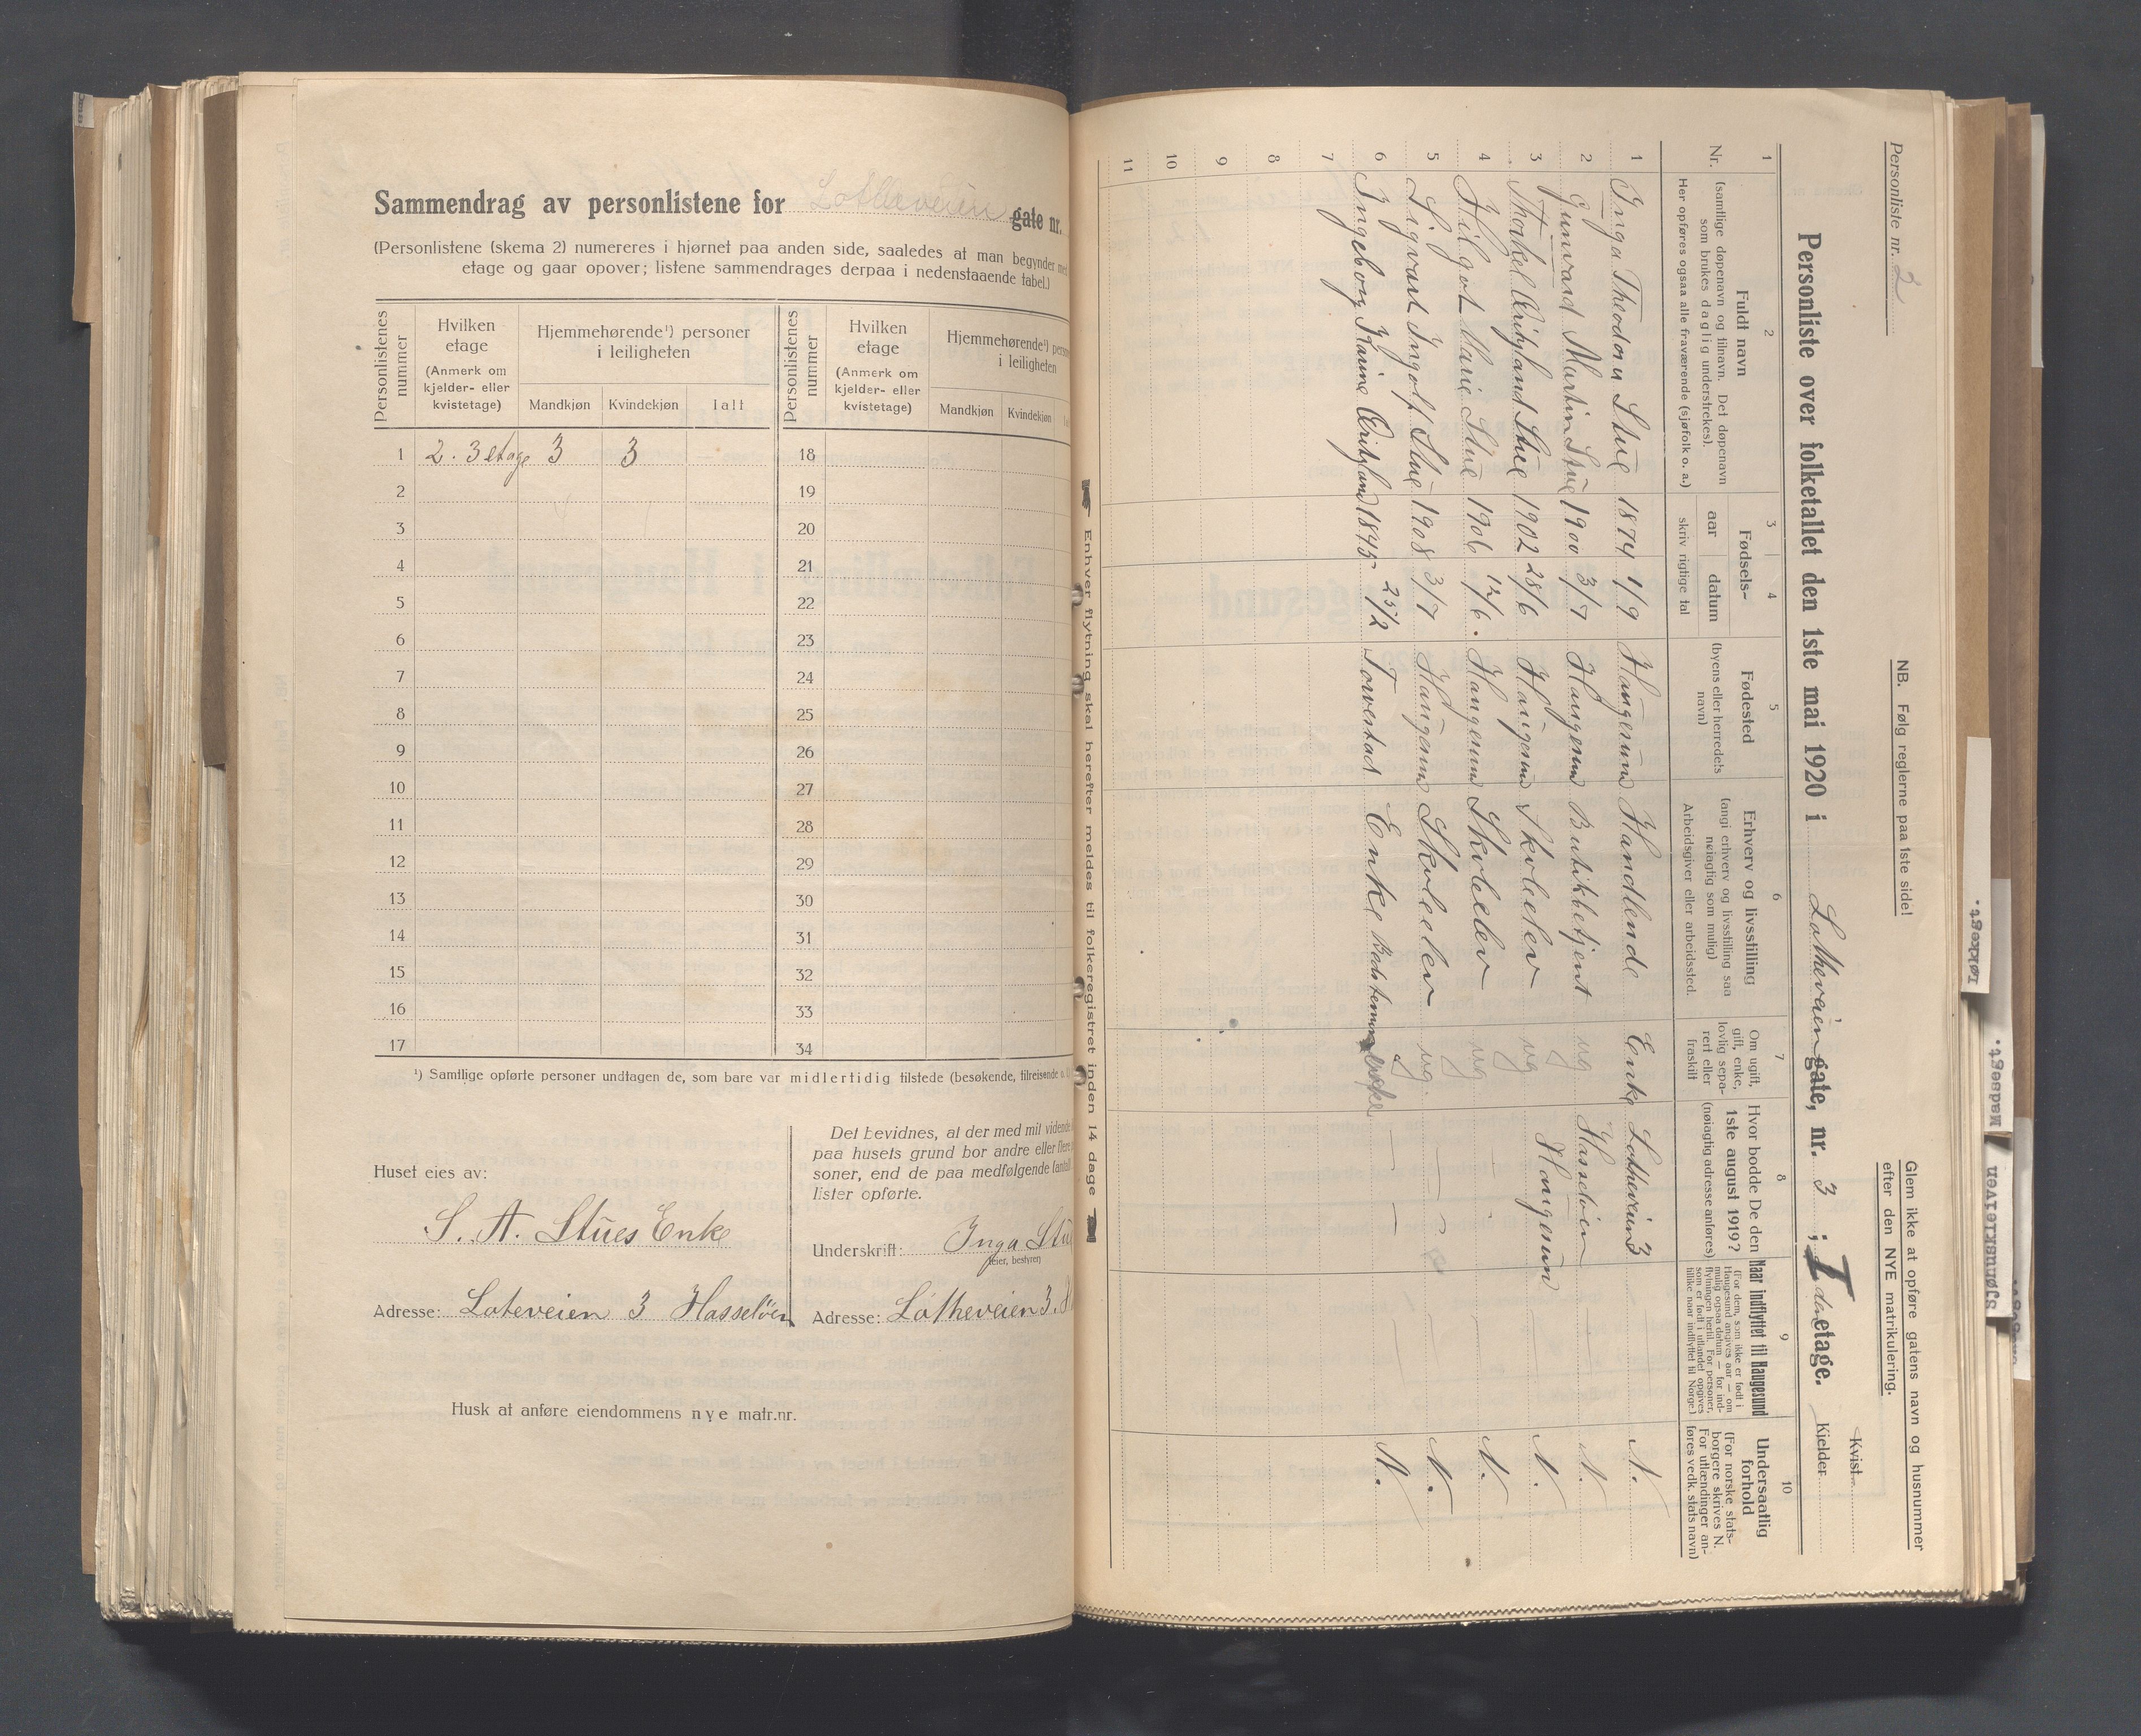 Sammendrag av personlistene for Lotheveien gate nr.
(Personlistene (skema 2) numereres i hjørnet paa anden side, saaledes at man begynder med
etage og gaar opover; listene sammendrages derpaa i nedenstaaende tabel.)
Personlistenes nummer
Hvilken etage
(Anmerk om kjelder- eller kvistetage)
Hjemmehørende¹) personer i leiligheten
Mandkjøn Kvindekjøn Ialt
Personlistenes nummer
Hvilken etage
(Anmerk om kjelder- eller kvistetage)
Hjemmehørende¹)
i leiligheten
Mandkjøn Kvindekjøn
1 2. 3 etage 3 3 18
2 19
3 20
4 21
5 22
6 23
7 24
8 25
9 26
10 27
11 28
12 29
13 30
14 31
15 32
16 33
17 34
¹) Samtlige opførte personer undtagen de, som bare var midlertidig tilstede (besøkende, tilreisende
Huset eies av:
S. A. Stues Enke
Adresse: Loteveien 3 Hasseløen
Det bevidnes, at der med mit vidende
paa husets grund bor andre eller flere
soner, end de paa medfølgende
lister opførte.
Underskrift: Inga
(eier, bestyrer)
Adresse: Lotheveien 3.
Husk at anføre eiendommens nye matr.nr.
Personliste nr. 2
NB. Følg reglerne paa 1ste side!
Glem ikke at opføre gatens navn og husnummer
efter den NYE matrikulering.
Personliste over folketallet den 1ste mai 1920 i Lotheveien gate, nr. 3 ; I den etage.
Kvist
Kjelder
1 2 3 4 5 6 7 8 9 10
Nr.
Fuldt navn
(samtlige døpenavn og tilnavn. Det døpenavn
som brukes daglig understrekes).
Her opføres ogsaa alle fraværende (sjøfolk o. a.)
Fødsels-
aar datum
skriv rigtige tal
Fødested
(byens eller herredets
navn)
Erhverv og livsstilling
(angi erhverv og livsstilling saa
nøiagtig som mulig)
Arbeidsgiver eller arbeidssted.
Om ugift,
gift, enke,
lovlig sepa-
rert eller
fraskilt
Hvor bodde De den
1ste august 1919?
(nøiagtig adresse anføres)
Naar indflyttet til Haugesund
(For dem, som ikke er født i
Haugesund angives aar — om
mulig ogsaa datum — for ind-
flytningen hertil. For personer,
som er født i utlandet opgives
tillike naar indflyttet til Norge.)
Undersaatlig
forhold
(For norske stats-
borgere skrives N.
For utlændinger an-
føres vedk. stats navn)
1 Inga Theodora Stue 1874 1/9 Haugesund Handlende Enke Lotheveien 3 N.
2 Gunvard Martin Stue 1900 3/7 Haugesund Butikbetjent ug Hasseløen N.
3 Thorkel Stue 1902 28/6 Haugesund Skoleelev ug Haugesun N.
4 Hilgot Marie Stue 1906 12/6. Haugesund Skoleelev ug N.
5 Sigvart Ingolf Stue 1908 3/7 Haugesund Skoleelev ug N.
6 Ingeborg 1845 25/2 Torvestad Enke N.
7
8
9
10
11
Enhver flytning skal herefter meldes til folkeregistret inden 14 dage